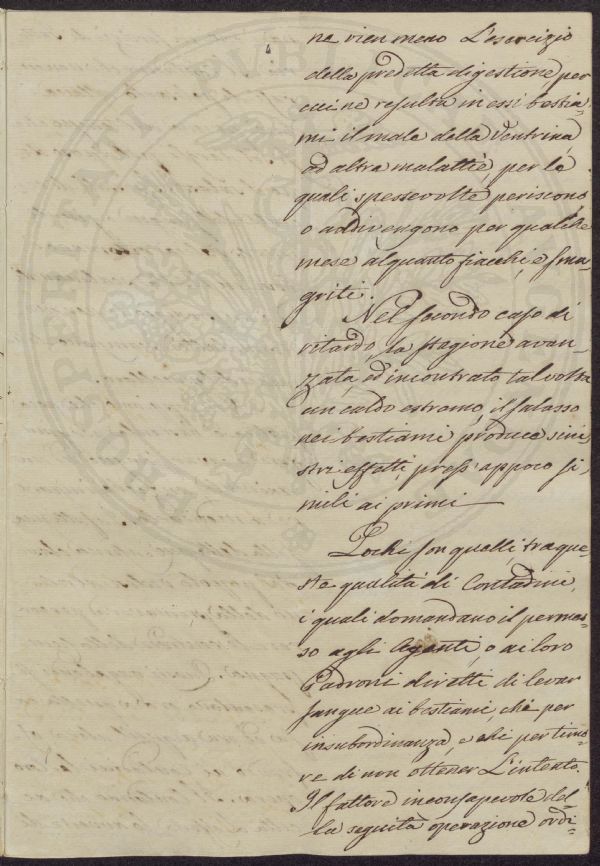 ne vien meno L'esercizio
della predetta digestione per
cui ne resulta in essi bestia-
mi il male della Ventrina,
ad altre malattie per le
quali spessevolte periscono,
o addivengono per qualche
mese alquanto fiacchi, e sma-
griti.
Nel secondo caso di
ritardo, la stagione avan-
zata, ed incontrato talvolta
un caldo estremo, il salasso
nei bestiami produce sini-
stri effetti, press'appoco si-
mili ai primi
Pochi son quelli, tra que-
ste qualità di Contadini,
i quali domandano il permes-
so agli Agenti, o ai loro
Padroni diretti di levar
sangue ai bestiami, chi per
insubordinanza, e chi per timo-
re di non ottener L'intento.
Il fattore inconsapevole del-
la seguita operazione ordi-
PROSPERITATI PUBLICAE